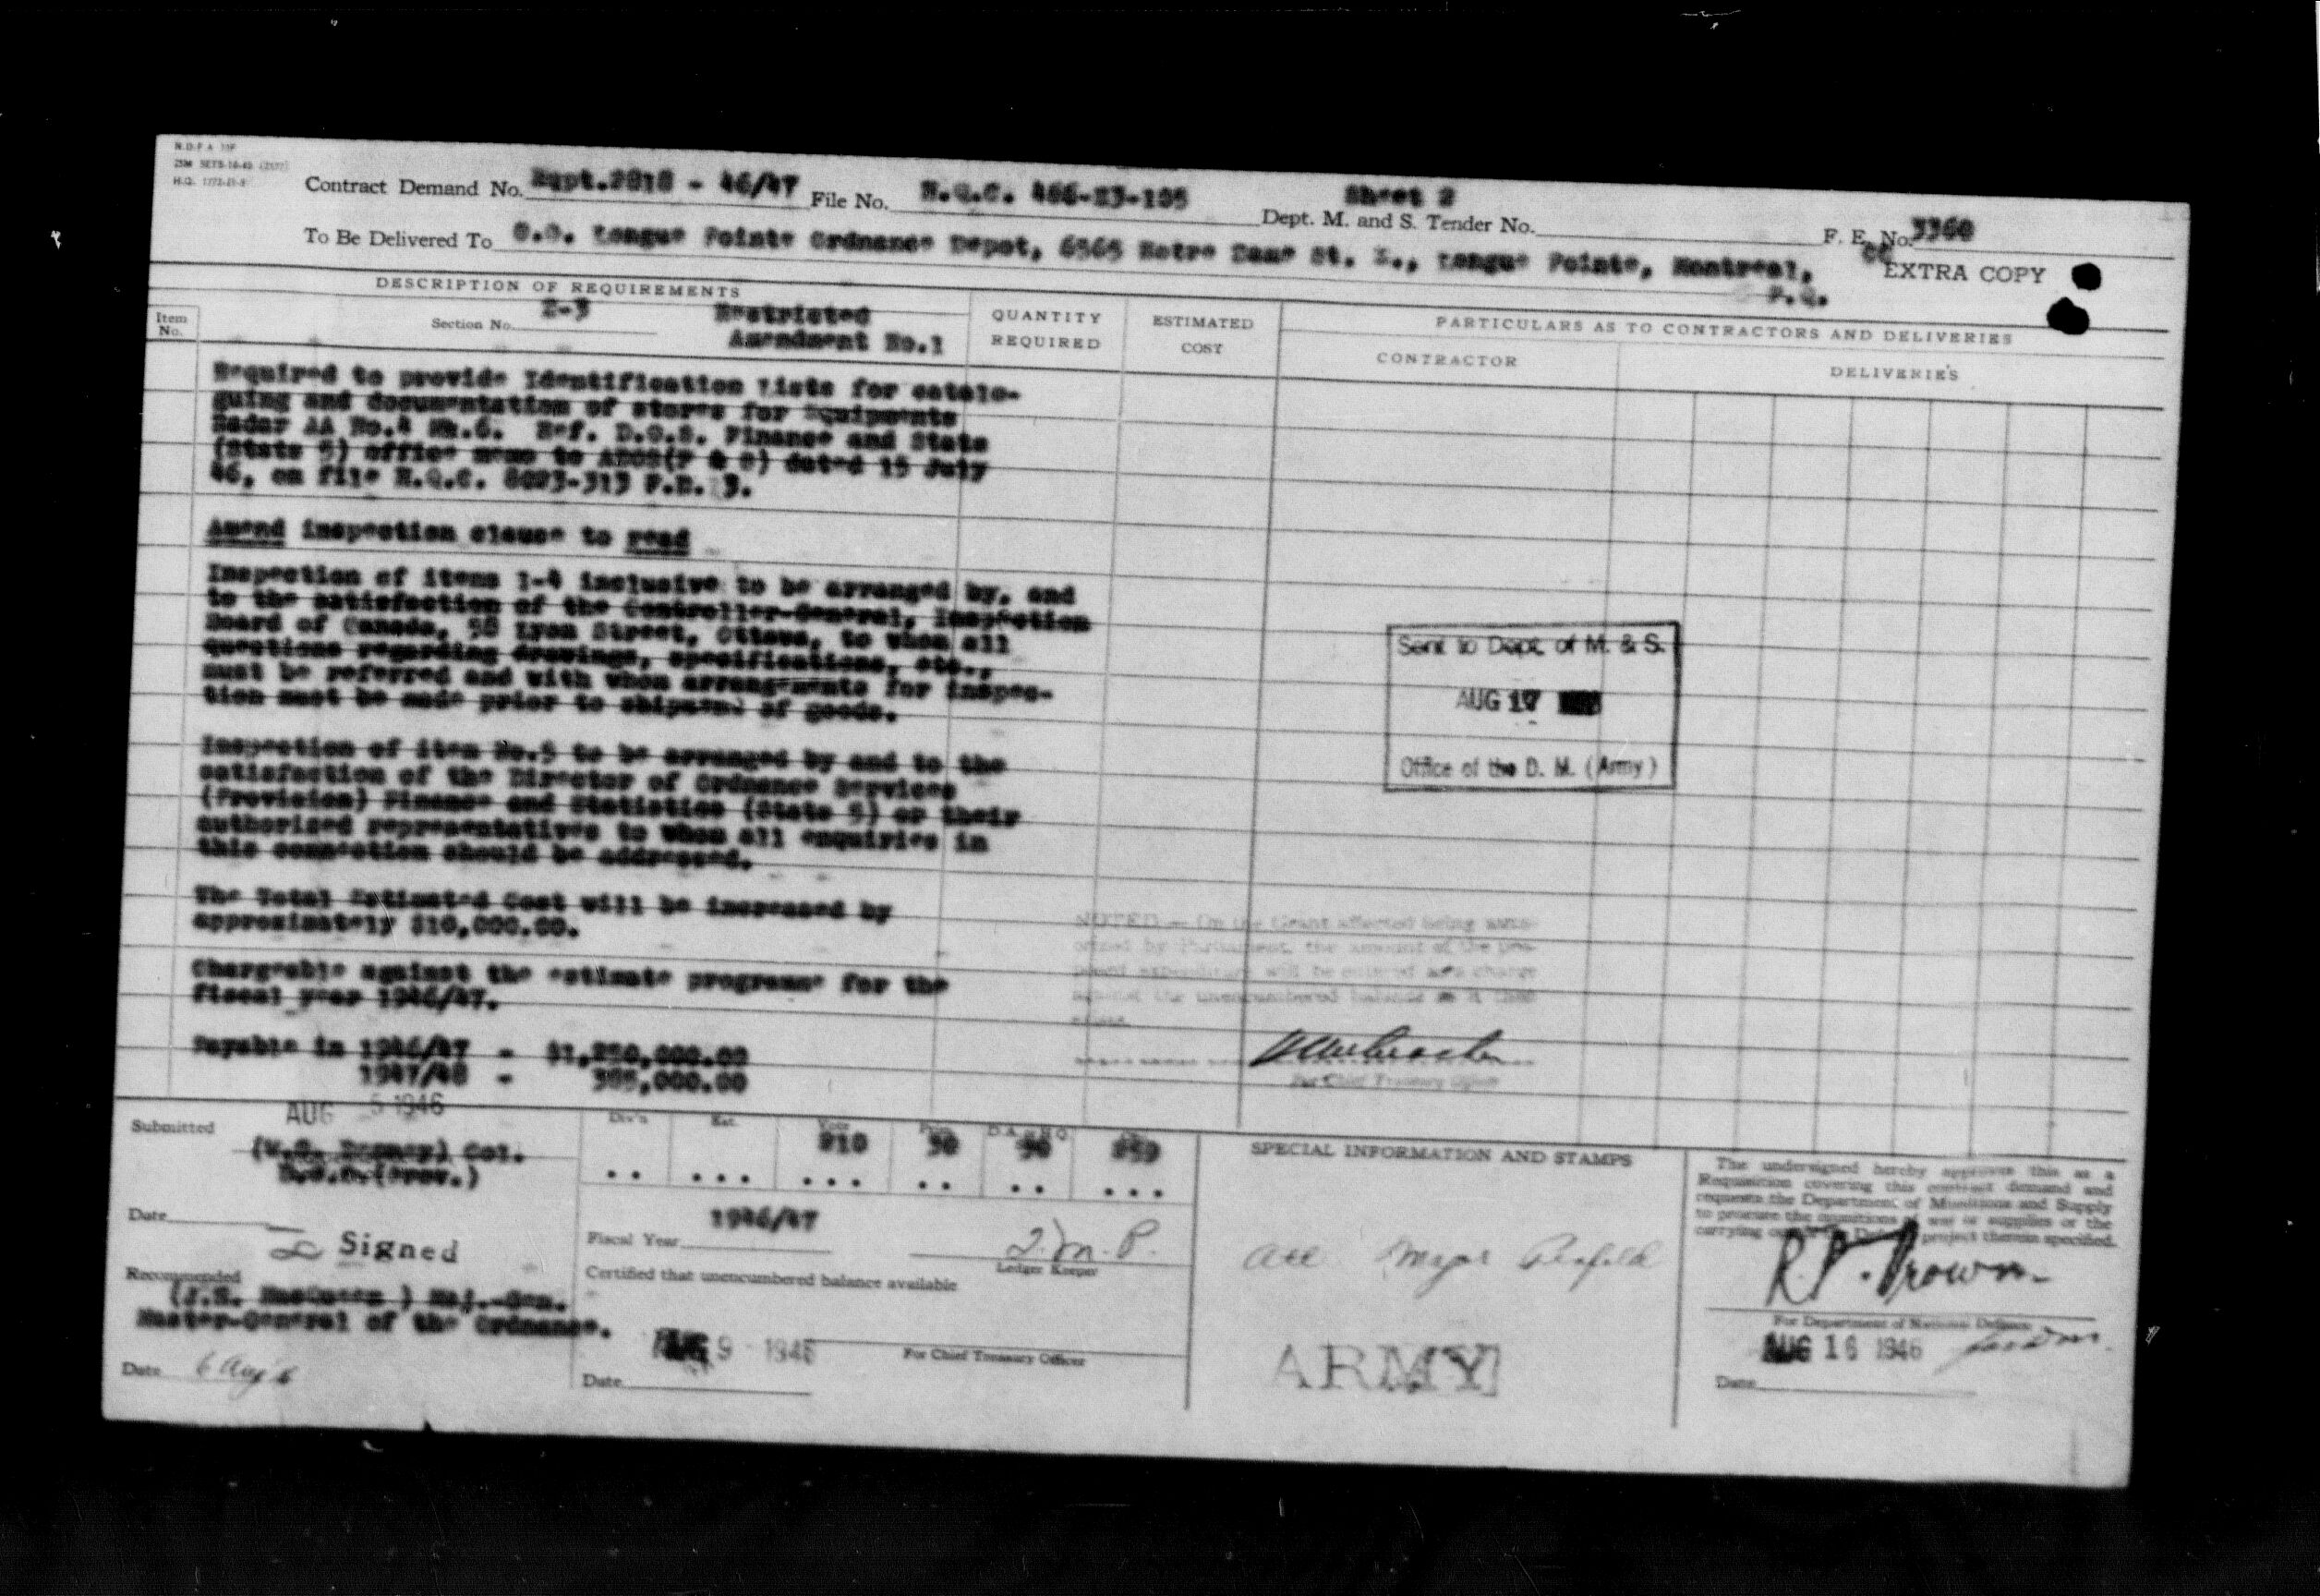 Contract Demand No. Eqpt.2818 - 46/47 File No. H.Q.C. 466-E3-105 Sheet 2
Dept. M. and S. Tender No. F. E. No. 3360
To Be Delivered To O.O. Longue Pointe Ordnance Depot, 6565 Notre Dame St. E., Longue Pointe, Montreal, P.Q.
EXTRA COPY
DESCRIPTION OF REQUIREMENTS
Item No.
Section No. E-3 Restricted
Amendment No.1
QUANTITY REQUIRED
ESTIMATED COST
PARTICULARS AS TO CONTRACTORS AND DELIVERIES
CONTRACTOR
DELIVERIES
Required to provide Identification Lists for catalo-
guing and documentation of stores for Equipments
Radar AA No.4 Mk.6. Ref. D.O.S. Finance and Stats
(Stats 5) office memo to ADOS(P & S) dated 15 July
46, on file H.Q.C. 8093-313 F.D. 3.
Amend inspection clause to read
Inspection of items 1-4 inclusive to be arranged by, and
to the satisfaction of the Controller-General, Inspection
Board of Canada, 58 Lyon Street, Ottawa, to whom all
questions regarding drawings, specifications, etc.,
must be referred and with whom arrangements for inspec-
tion must be made prior to shipment of goods.
Inspection of item No.5 to be arranged by and to the
satisfaction of the Director of Ordnance Services
(Provision) Finance and Statistics (Stats 5) or their
authorized representatives to whom all enquiries in
this connection should be addressed.
The Total Estimated Cost will be increased by
approximately $10,000.00.
Chargeable against the estimate programme for the
fiscal year 1946/47.
Payable in 1946/47 - $1,250,000.00
1947/48 - 385,000.00
Sent to Dept. of M. & S.
AUG 17
Office of the D. M. (Army)
NOTED — On the Grant affected being auth-
orized by Parliament, the amount of the pro-
posed expenditure will be entered as a charge
against the unencumbered balance
For Chief Treasury Officer
AUG 5 1946
Submitted
Col.
D.O.S.(Prov.)
Date
Signed
Recommended
(J.H. MacQueen ) Maj.-Gen.
Master-General of the Ordnance.
Date 6 Aug
Div'n Est. Vote Prim. D.A. H.Q.
210 90 90
Fiscal Year 1946/47
Ledger Keeper
Certified that unencumbered balance available
AUG 9 1946
For Chief Treasury Officer
Date
SPECIAL INFORMATION AND STAMPS
Att Major Penfold
ARMY
The undersigned hereby approves this as a
Requisition covering this contract demand and
requests the Department of Munitions and Supply
to procure the munitions of war or supplies or the
carrying out of the Defence project therein specified.
R.P. Brown
For Department of National Defence
AUG 16 1946
Date